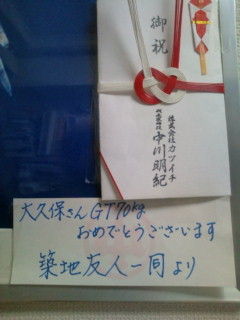 御祝
株式会社カツイチ
代表取締役 中川明紀
大久保さん GT70kg
おめでとうございます
築地友人一同より